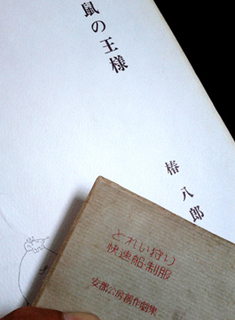 鼠の王様
椿八郎
どれい狩り
快速船・制服
安部公房創作劇集